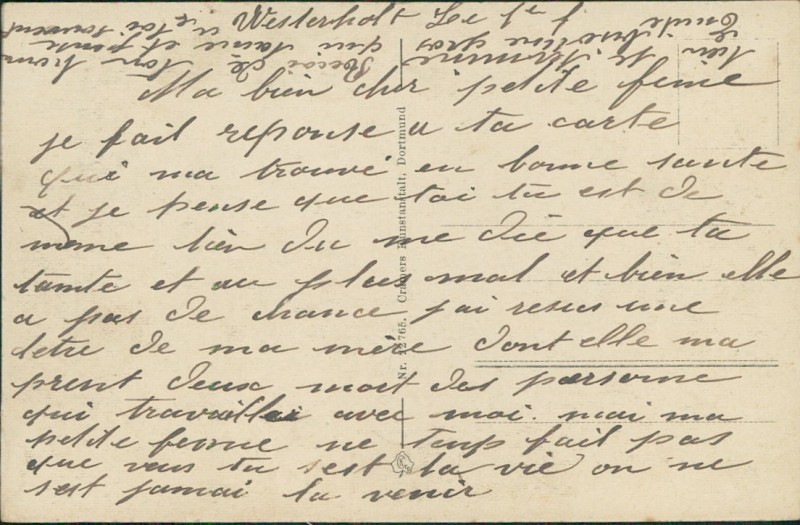 Westerholt Le
Ma bien cher petite feme
je fait reponse a ta carte
qui ma trouvé en bonne sante
et je pense que toi tu est de
meme bien du me die que ta
tante et au plus mal et bien elle
a pas de chance jai resus une
letre de ma mère dont elle ma
prent deux mort des persone
qui travaillai avec moi. mai ma
petite femme ne temp fait pas
que veus tu sest la vie on ne
sest jamai la venir
tien je termine
Recoi de ton hom
qui taime et pense
a toi souvent
Emile
Nr. 12765. Cramers Kunstanstalt, Dortmund